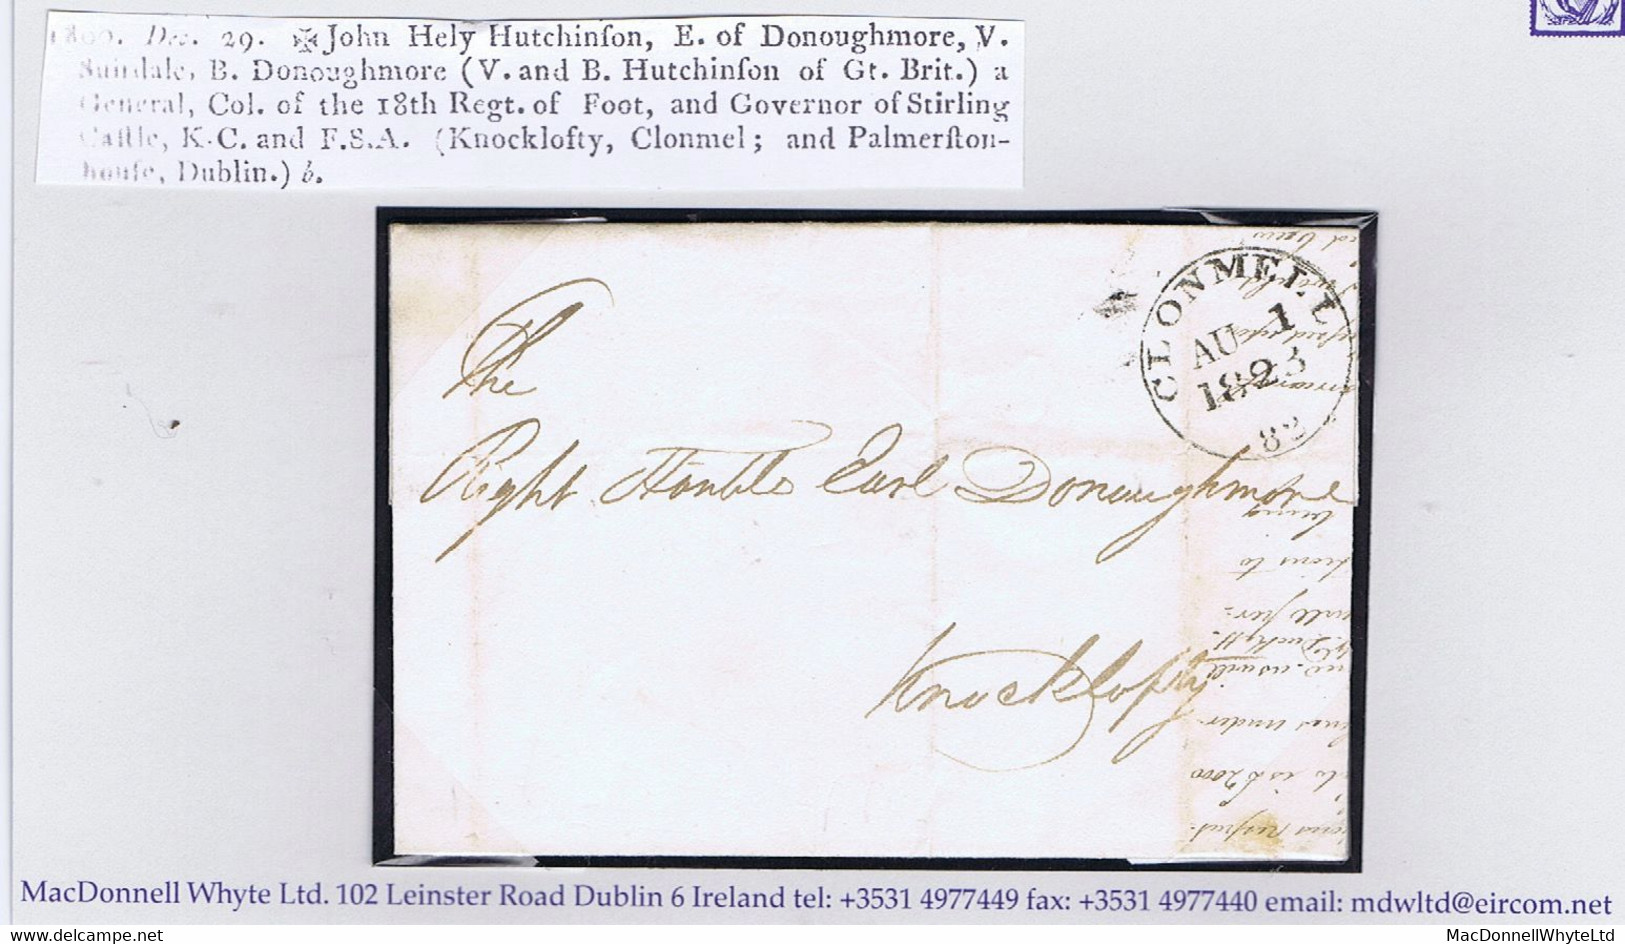 1800. Dec. 29. ✠John Hely Hutchinſon, E. of Donoughmore, V.
Suirdale, B. Donoughmore (V. and B. Hutchinſon of Gt. Brit.) a
General, Col. of the 18th Regt. of Foot, and Governor of Stirling
Caſtle, K.C. and F.S.A. (Knocklofty, Clonmel; and Palmerſton-
houſe, Dublin.) b.
CLONMELL
AU 1
1823
82
The
Right Honble Earl Donoughmore
Knocklofty
being
to
will per-
as will
under
is £2000
MacDonnell Whyte Ltd. 102 Leinster Road Dublin 6 Ireland tel: +3531 4977449 fax: +3531 4977440 email: mdwltd@eircom.net
www.delcampe.net
MacDonnellWhyteLtd